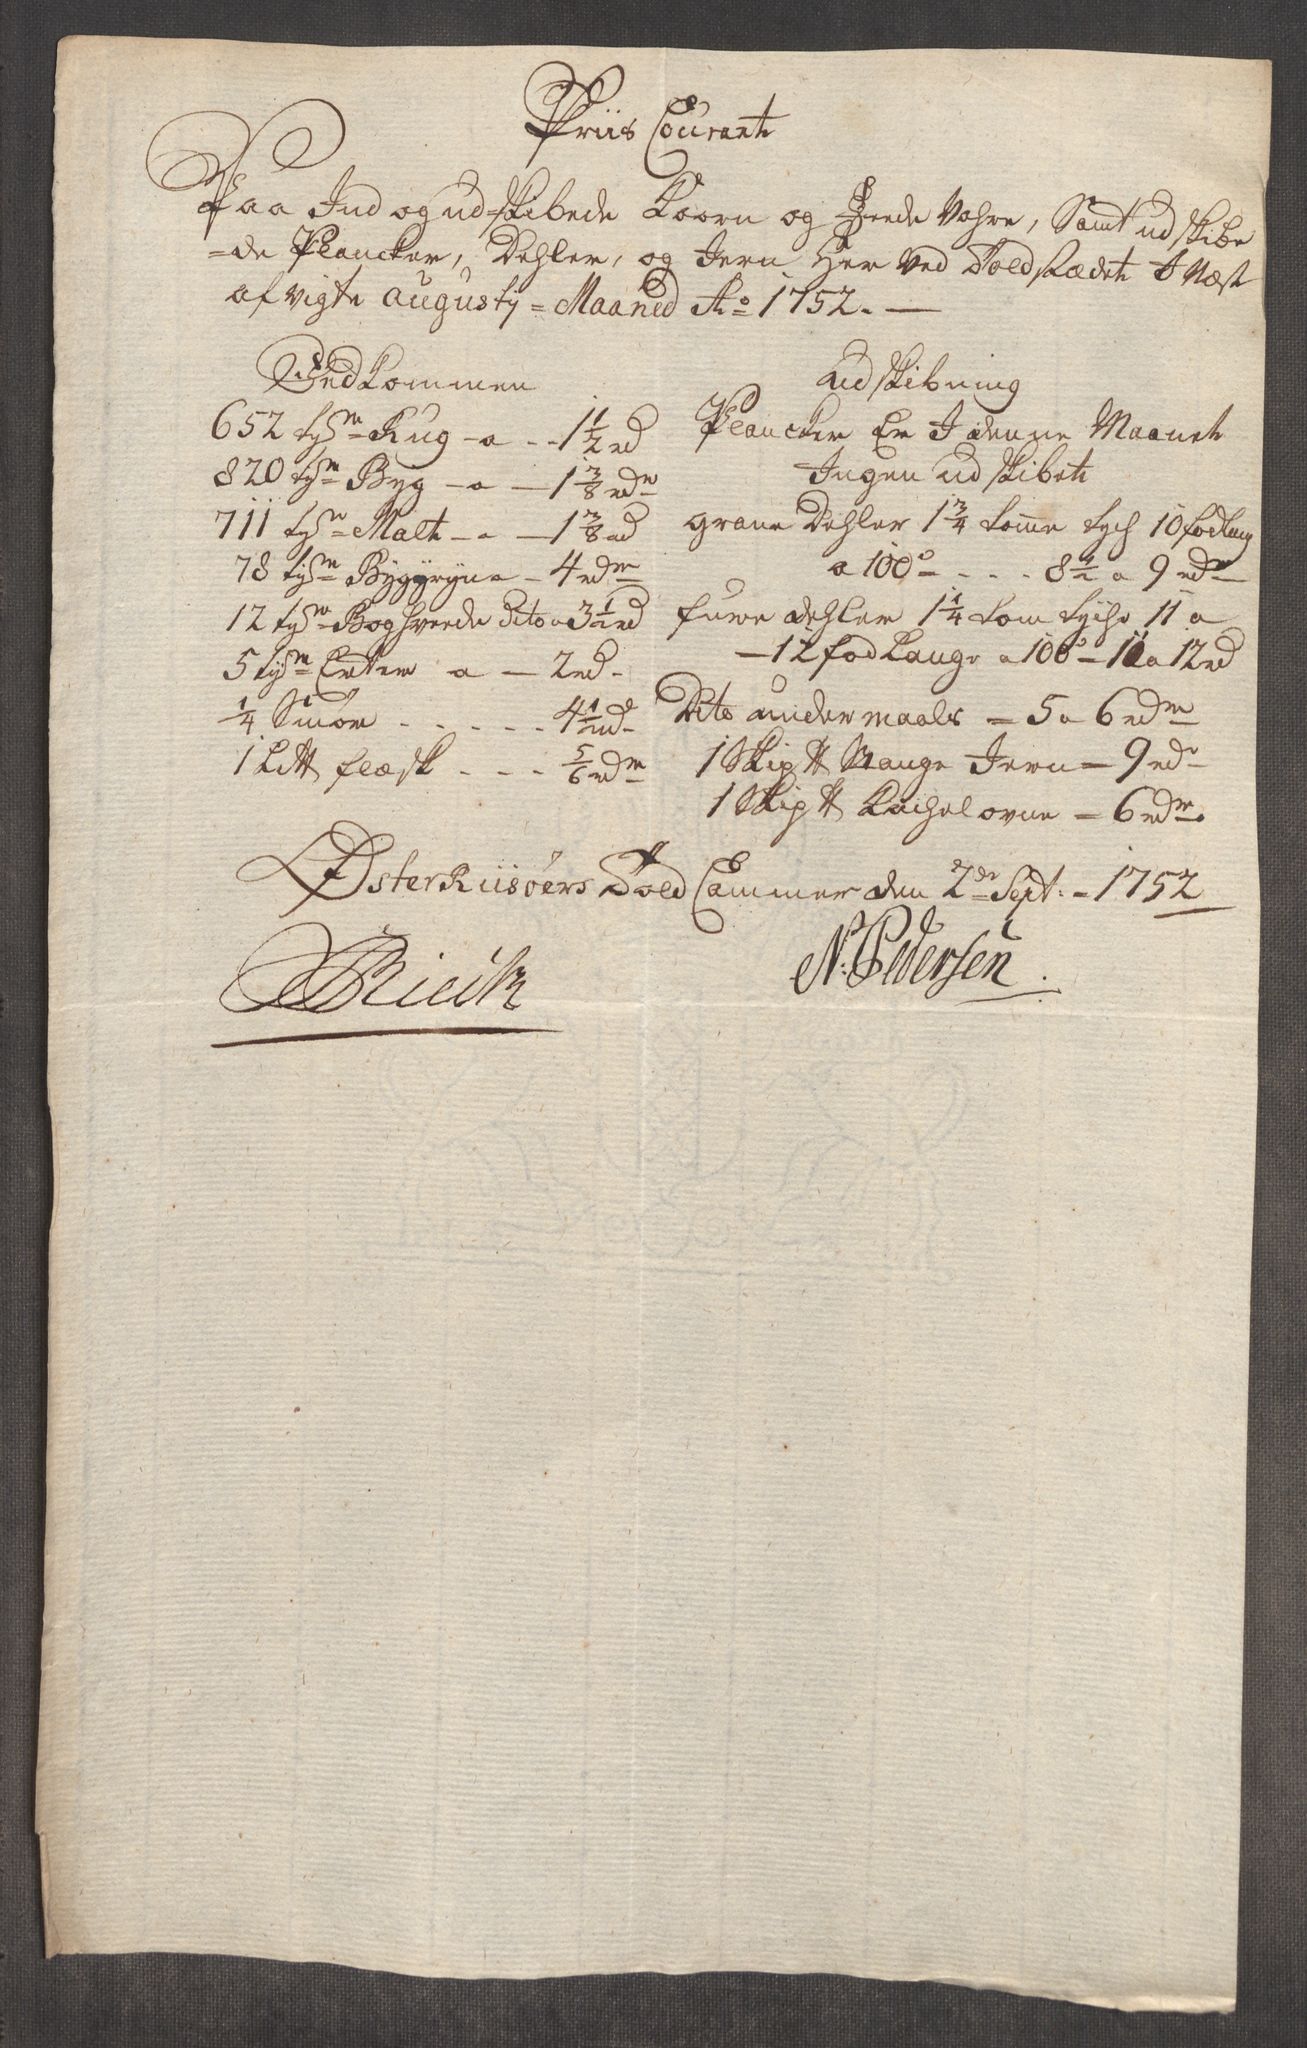 Priis Courant
Paa Ind og udskibede Koorn og Feede Vahre, Samt udskibe
=de Plancker, Dehler, og Jern Her Ved Toldstædet I Næst
afvigte Augusty = Maaned Ao 1752. —
Indkommen
652 tyr Rug – a – – 1 1/2 rd
820 tyr Byg – a — 1 3/8 rdr
711 tyr Malt – a – 1 3/8 rd
78 tyr Byggryn a – 4 rdr
12 tyr Boghvede dito a 3 1/2 rd
5 tyr Erter a — 2 rd –
1/4 Smör - - - - - 4 1/2 rd –
1 L℔ flæsk - - - 5/6 rdr
Udskibning
Plancker Er I denne Maanet
Ingen udskibet
grane Dehler 1 3/4 tomme tych 10 fod lang
a 100de - - - 8 1/2 a 9 rdr
furre dehler 1 1/4 tom tyche 11 a
– 12 fod lange a 100de – 11 a 12 rd
Dito undermaals = 5 a 6 rdr
1 Skip ℔ Stange Jern = 9 rdr
1 Skip ℔ Kachelovne = 6 rdr.
Østerriisøers Told Cammer den 2de Sept: – 1752
N: Pedersen.